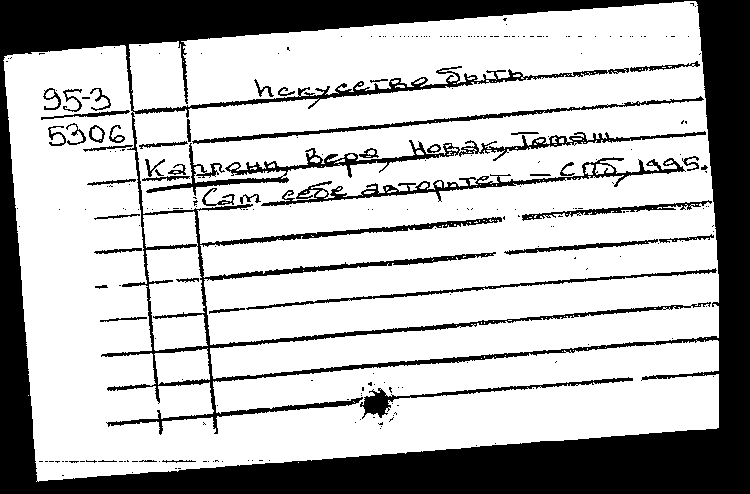 95-3
5306
Искусство быть
Каппони, Вера, Новак, Томаш
Сам себе авторитет. — СПб, 1995.